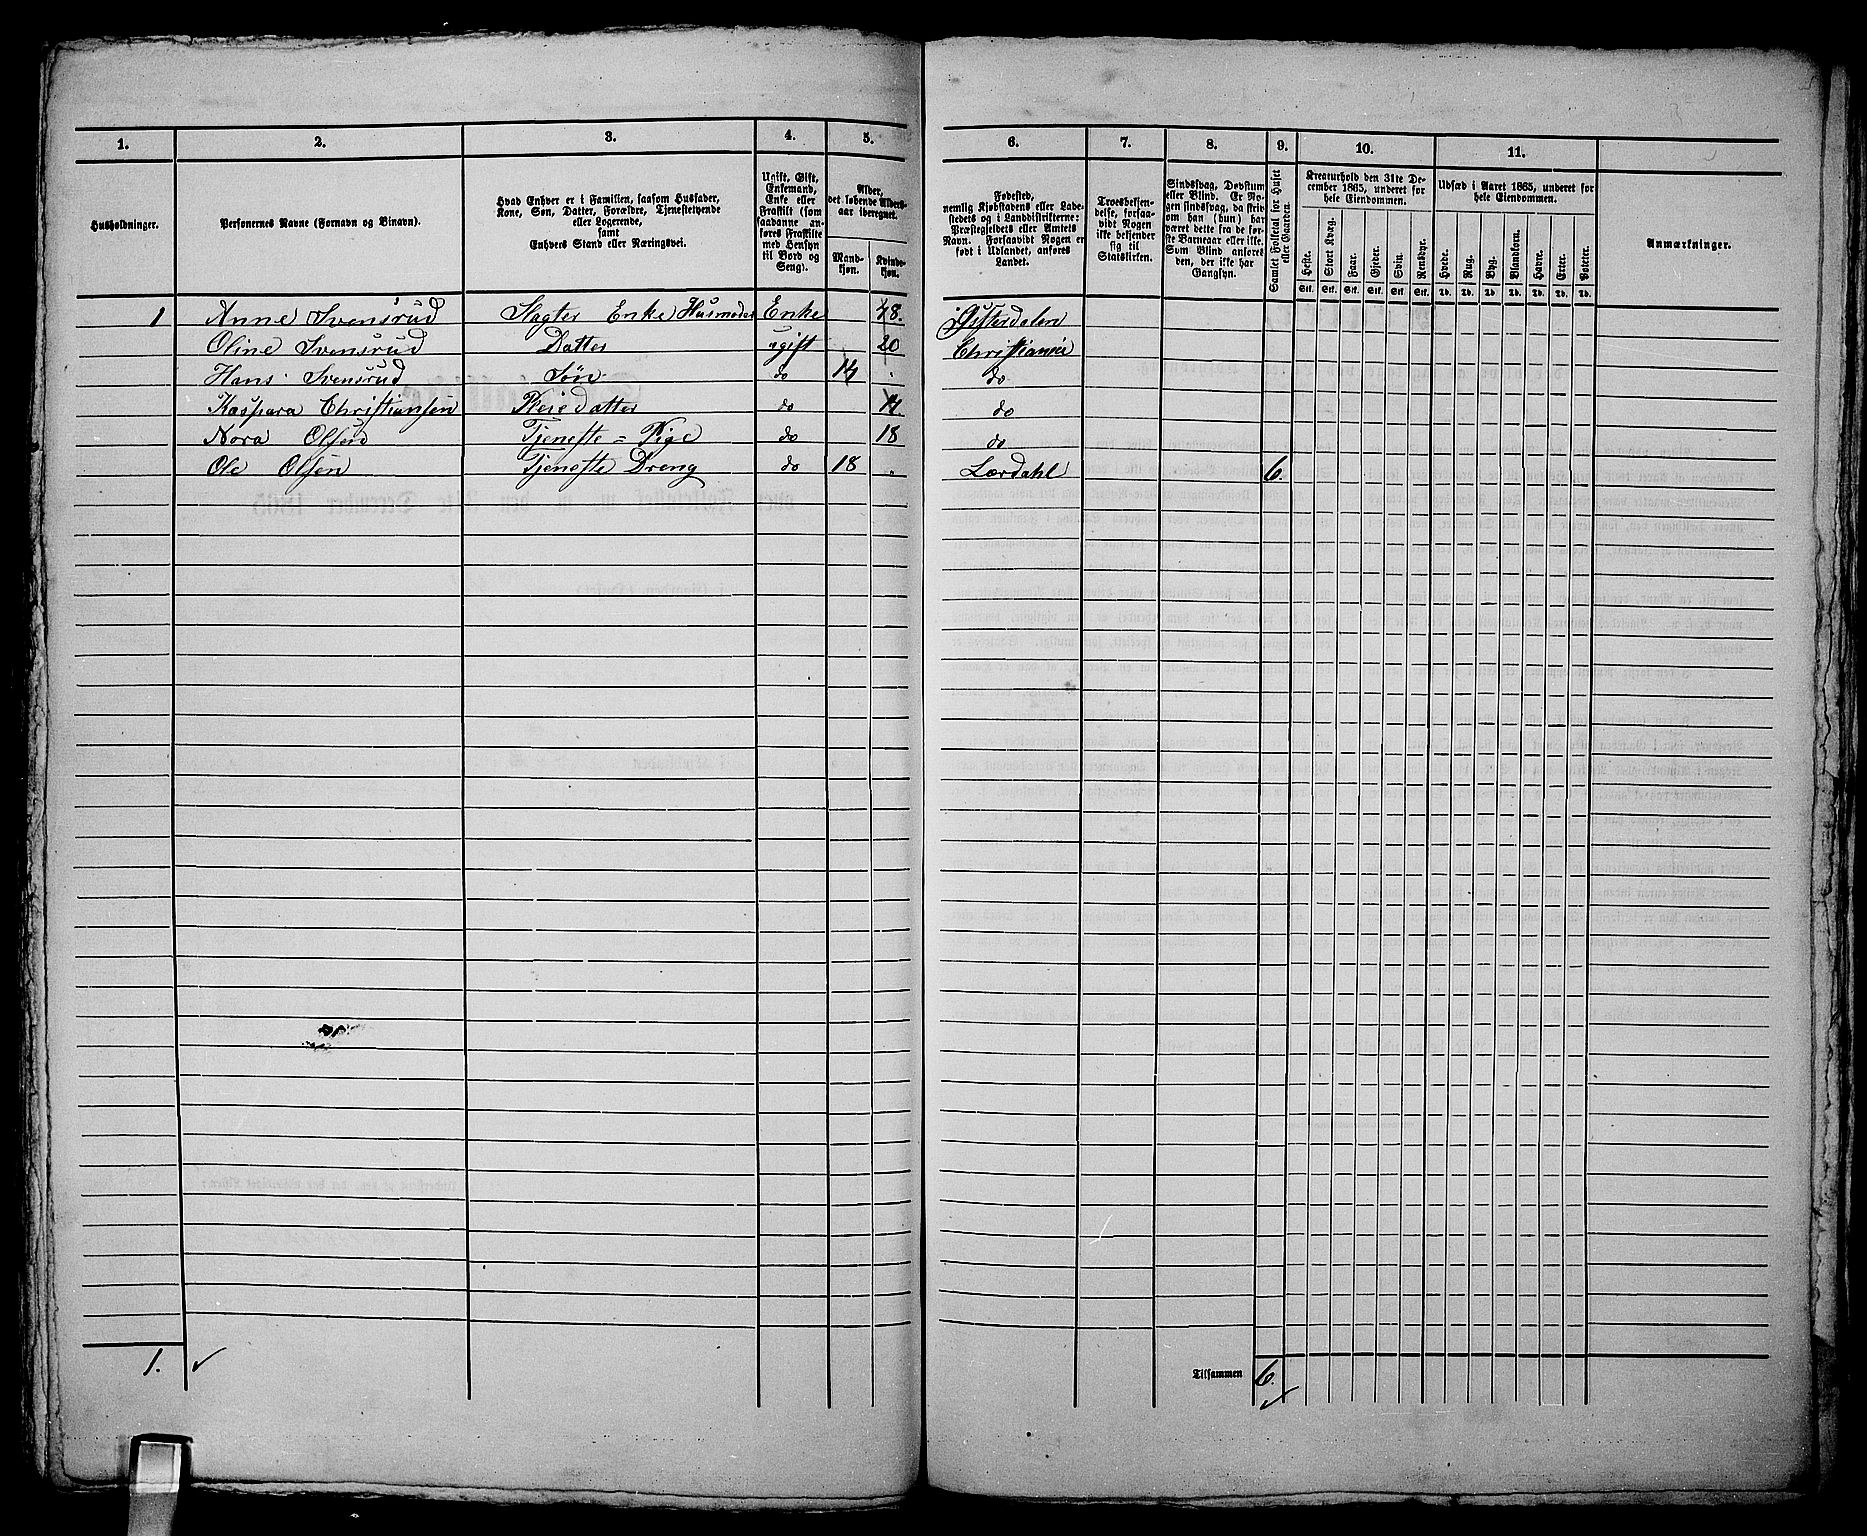 1. 2. 3. 4. 5. 6. 7. 8. 9. 10. 11.
Husholdninger.
Personernes Navne (Fornavn og Binavn).
Hvad Enhver er i Familien, saasom Husfader,
Kone, Søn, Datter, Forældre, Tjenestetyende
eller Logerende,
samt
Enhvers Stand eller Næringsvei.
Ugift, Gift,
Enkemand,
Enke eller
Fraskilt (som
saadanne an-
føres Fraskilte
med Hensyn
til Bord og
Seng).
Alder,
det løbende Alders-
aar iberegnet.
Mand-
kjøn.
Kvinde-
kjøn.
Fødested,
nemlig Kjøbstadens eller Lade-
stedets og i Landdistrikterne:
Præstegjeldets eller Amtets
Navn. Forsaavidt Nogen er
født i Udlandet, anføres
Landet.
Troesbekjen-
delse, forsaa-
vidt Nogen
ikke bekjender
sig til
Statskirken.
Sindssvag, Døvstum
eller Blind. Er No-
gen sindssvag, da skriv
om han (hun) har
været dette fra de før-
ste Barneaar eller ikke.
Som Blind anføres
den, der ikke har
Gangsyn.
Samlet Folketal for Huset
eller Gaarden.
Kreaturhold den 31te De-
cember 1865, underet for
hele Eiendommen.
Heste. Stort Kvæg. Faar. Gjeder. Svin. Rensdyr.
Stk. Stk. Stk. Stk. Stk. Stk.
Udsæd i Aaret 1865, underet for
hele Eiendommen.
Hvede. Rug. Byg. Blandkorn. Havre. Erter. Poteter.
Td. Td. Td. Td. Td. Td. Td.
Anmærkninger.
1 Anne Svensrud Enke Husmoder Enke 48. Østerdalen
Oline Svensrud Datter ugift 20 Christiania
Hans Svensrud Søn do 14 do
Kaspara Christiansen Pleiedatter do 11 do
Nora Olsen Tjeneste=Pige do 18 do
Ole Olsen Tjeneste Dreng do 18 Lærdahl 6.
1. Tilsammen 6.